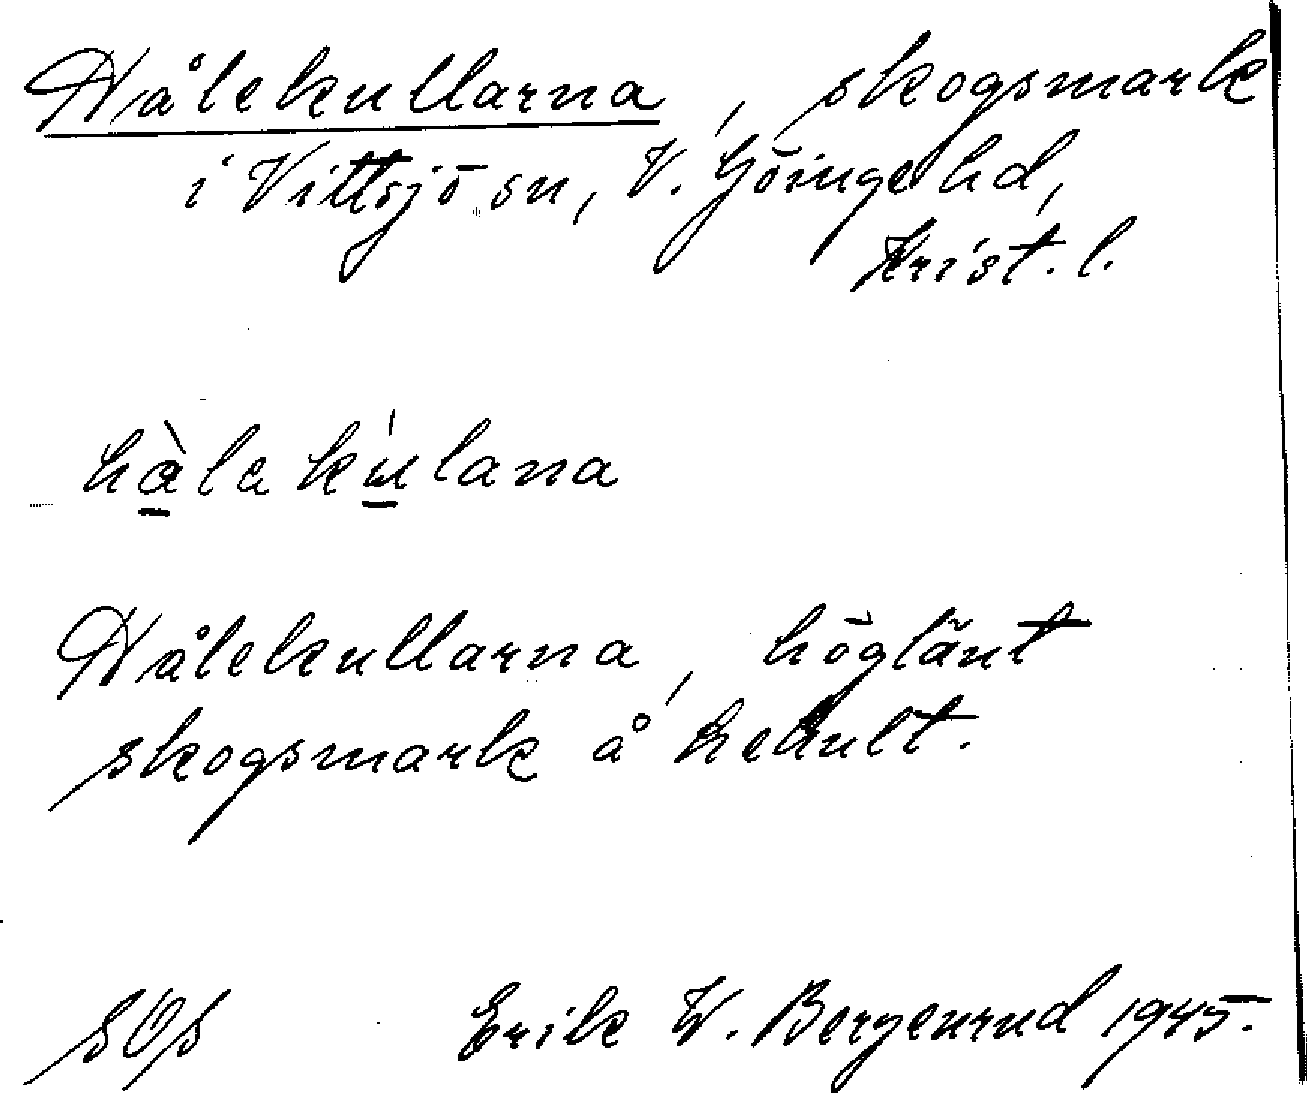 Hålekullarna, skogsmark
i Vittsjö sn, V. Göinge hd,
Krist. l.
hàlekúlana
Hålekullarna, höglänt
skogsmark å
SOS Erik W. Bergenrud 1945.